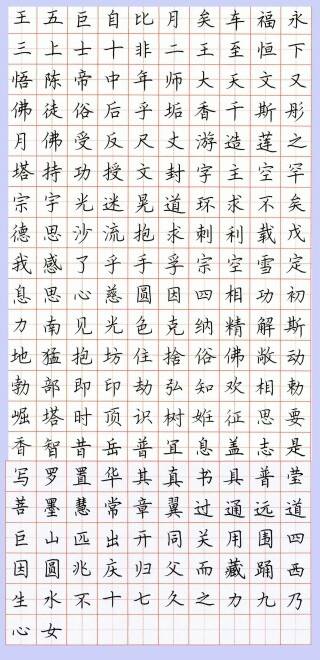 王五巨自比月矣车福永
三上士十非二王至恒下
悟陈帝中年师大天文又
佛徒俗后乎垢香千斯彤
月佛受反尺丈游造莲之
塔持功授文封字主空罕
宗宇光迷晃道环求不矣
德思沙流抱求刺利载戊
我感了乎手孚宗空雪定
息思心慈圆因四相功初
力南见光色克纳精解斯
地猛抱坊住捨俗佛敞动
勃部即印劫弘知欢相勅
崛塔时顶识树姙征思要
香智昔岳普宜息盖志是
写罗置华其真书具普莹
菩墨慧常章翼过通远道
巨山匹出开同关用围四
因圆兆庆归父而藏踊西
生水不十七久之力九乃
心女